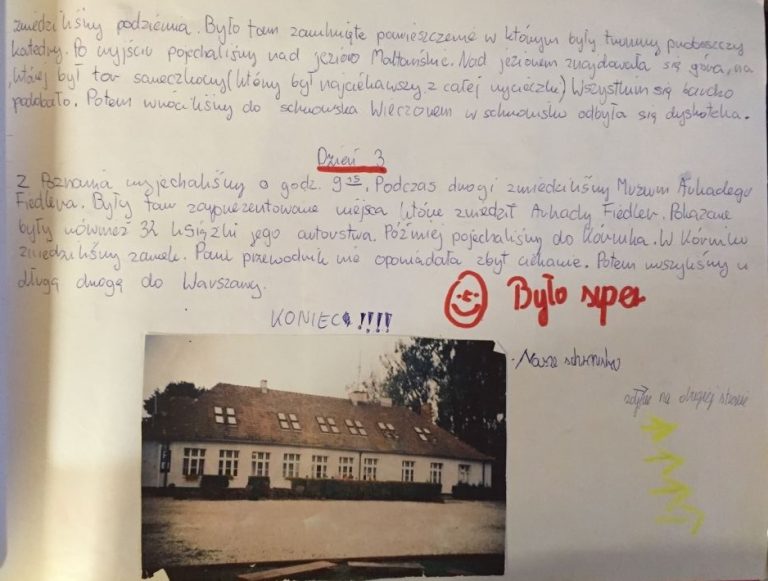 zwiedziliśmy podziemia. Było tam zamknięte pomieszczenie w którym były trumny proboszczy
katedry. Po wyjściu pojechaliśmy nad jezioro Maltańskie. Nad jeziorem znajdowała się góra, na
której był tor saneczkowy (który był najciekawszy z całej wycieczki) Wszystkim się bardzo
podobało. Potem wróciliśmy do schroniska Wieczorem w schronisku odbyła się dyskoteka.
Dzień 3
Z Poznania wyjechaliśmy o godz. 9 15. Podczas drogi zwiedziliśmy Muzeum Arkadego
Fiedlera. Były tam zaprezentowane miejsca które zwiedził Arkady Fiedler. Pokazane
były również 32 książki jego autorstwa. Później pojechaliśmy do Kórnika. W Kórniku
zwiedziliśmy zamek. Pani przewodnik nie opowiadała zbyt ciekawie. Potem ruszyliśmy w
długą drogę do Warszawy.
Było super
KONIEC !!!!
Nasze schronisko
zdjęcie na drugiej stronie